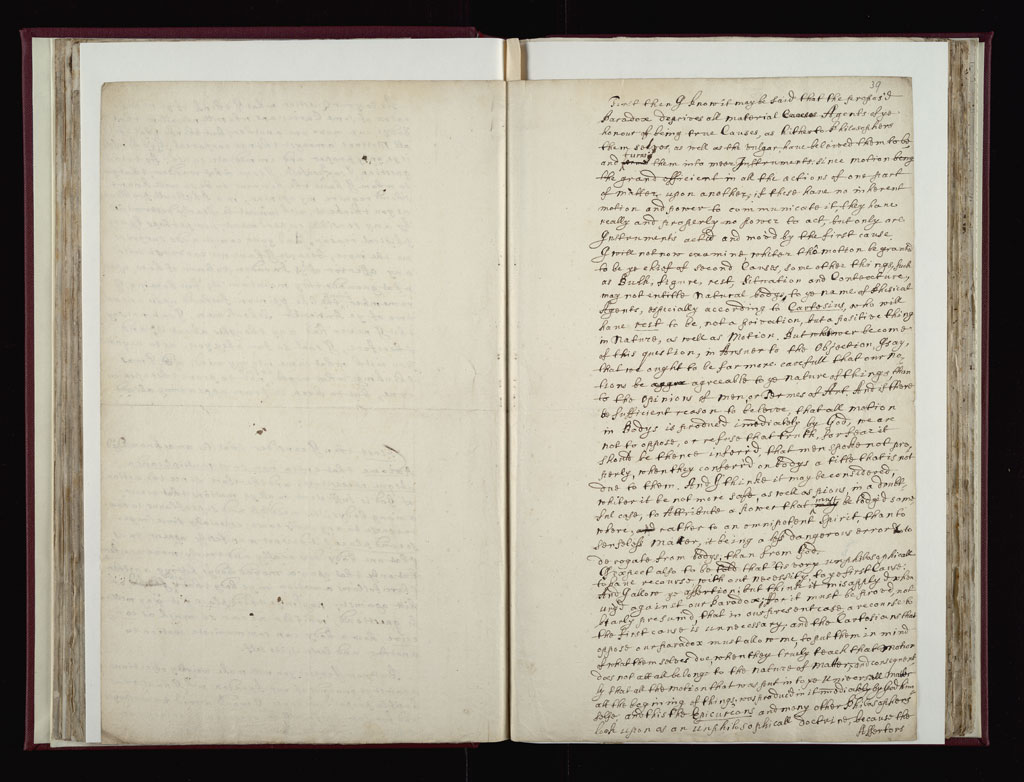 39
First then I know it may be said that the propos'd
Paradox deprives all material Agents of ye
honour of being true Causes, as hitherto Philosophers
them selves, as well as the vulgar have beleived them to be
and turns them into meer Instruments: since motion being
the grand efficient in all the actions of one part
of matter upon another, if these have no inherent
motion and power to communicate it, they have
really and properly no power to act, but only are
Instruments acted and mov'd by the first cause.
I will not now examine whiter tho motion be granted
to be ye chief of second Causes, some other things, such
as Bulk, figure, rest, Situation and Contexture,
may not entitle Natural bodys, to ye name of Phisical
Agents, especially according to Cartesius, who will
have rest to be, not a privation, but a positive thing
in Nature, as well as Motion. But whatever become
of this question, in Answer to the Objection I say,
that we ought to be far more carefull that our no,
tions be agreeable to ye nature of things than
to the opinions of men, or Termes of Art. And if there
be sufficient reason to beleive, that all motion
in Bodys is produced immediately by God, we are
not to oppose, or refuse that truth, for fear it
should be thence inferr'd, that men spoke not pro,
perly, when they conferr'd on Bodys a title that is not
due to them. And I thinke it may be considered,
whiter it be not more safe, as well as pious, in a doubt,
ful case, to Attribute a power that must be lodg'd some
where, rather to an omnipotent Spirit, than to
senseless Matter, it being a less dangerous error to
derogate from bodys, than from God.
I expect also to be told that 'tis very unphilosophicall
to have recourse with out necessity to ye first Cause:
And I allow ye assertion; but think it misapply'd when
urg'd against our Paradox; for it must be prov'd, not
barly presum'd, that in our present case a recourse to
the first cause is unnecessary; and the Cartesians that
oppose our paradox must allow me, to put them in mind
of what themselves doe, when they truely teach that Motion
does not at all belong to the nature of Matter; and consequent
ly that all the Motion that was put in to ye universall matter
at the begining of things, was produced in it immediately by God him
selfe and this the Epicureans and many other Philosophers
look upon as an unphilosophicall doctrine, because the
Assertors